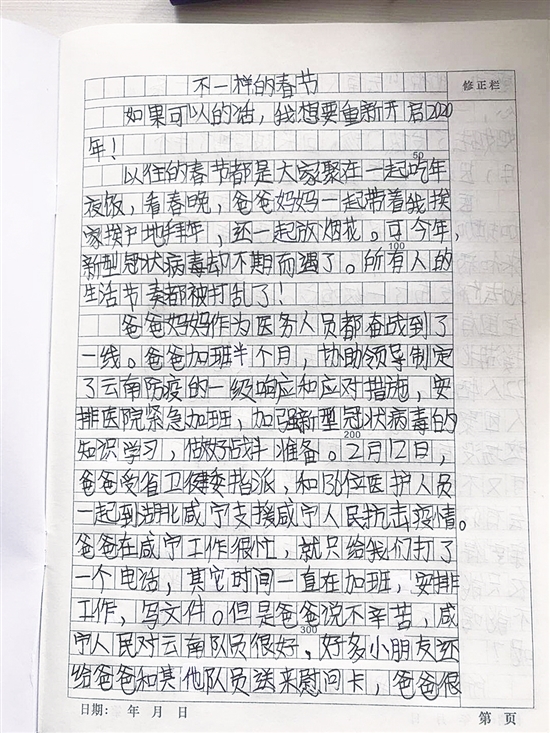 不一样的春节
修正栏
如果可以的话，我想要重新开启2020
年！
50
以往的春节都是大家聚在一起吃年
夜饭，看春晚，爸爸妈妈一起带着我挨
家挨户地拜年，还一起放烟花。可今年，
100
新型冠状病毒却不期而遇了。所有人的
生活节奏都被打乱了！
爸爸妈妈作为医务人员都奋战到了
一线。爸爸加班半个月，协助领导制定
了云南防疫的一级响应和应对措施，安
排医院紧急加班，加强新型冠状病毒的
知识学习，做好战斗准备。2月12日，
200
爸爸受省卫健委指派，和136位医护人员
一起到湖北咸宁支援咸宁人民抗击疫情。
爸爸在咸宁工作很忙，就只给我们打了
一个电话，其它时间一直在加班，安排
工作，写文件。但是爸爸说不辛苦，咸
宁人民对云南队员很好，好多小朋友还
300
给爸爸和其他队员送来慰问卡，爸爸很
日期： 年 月 日
第 页